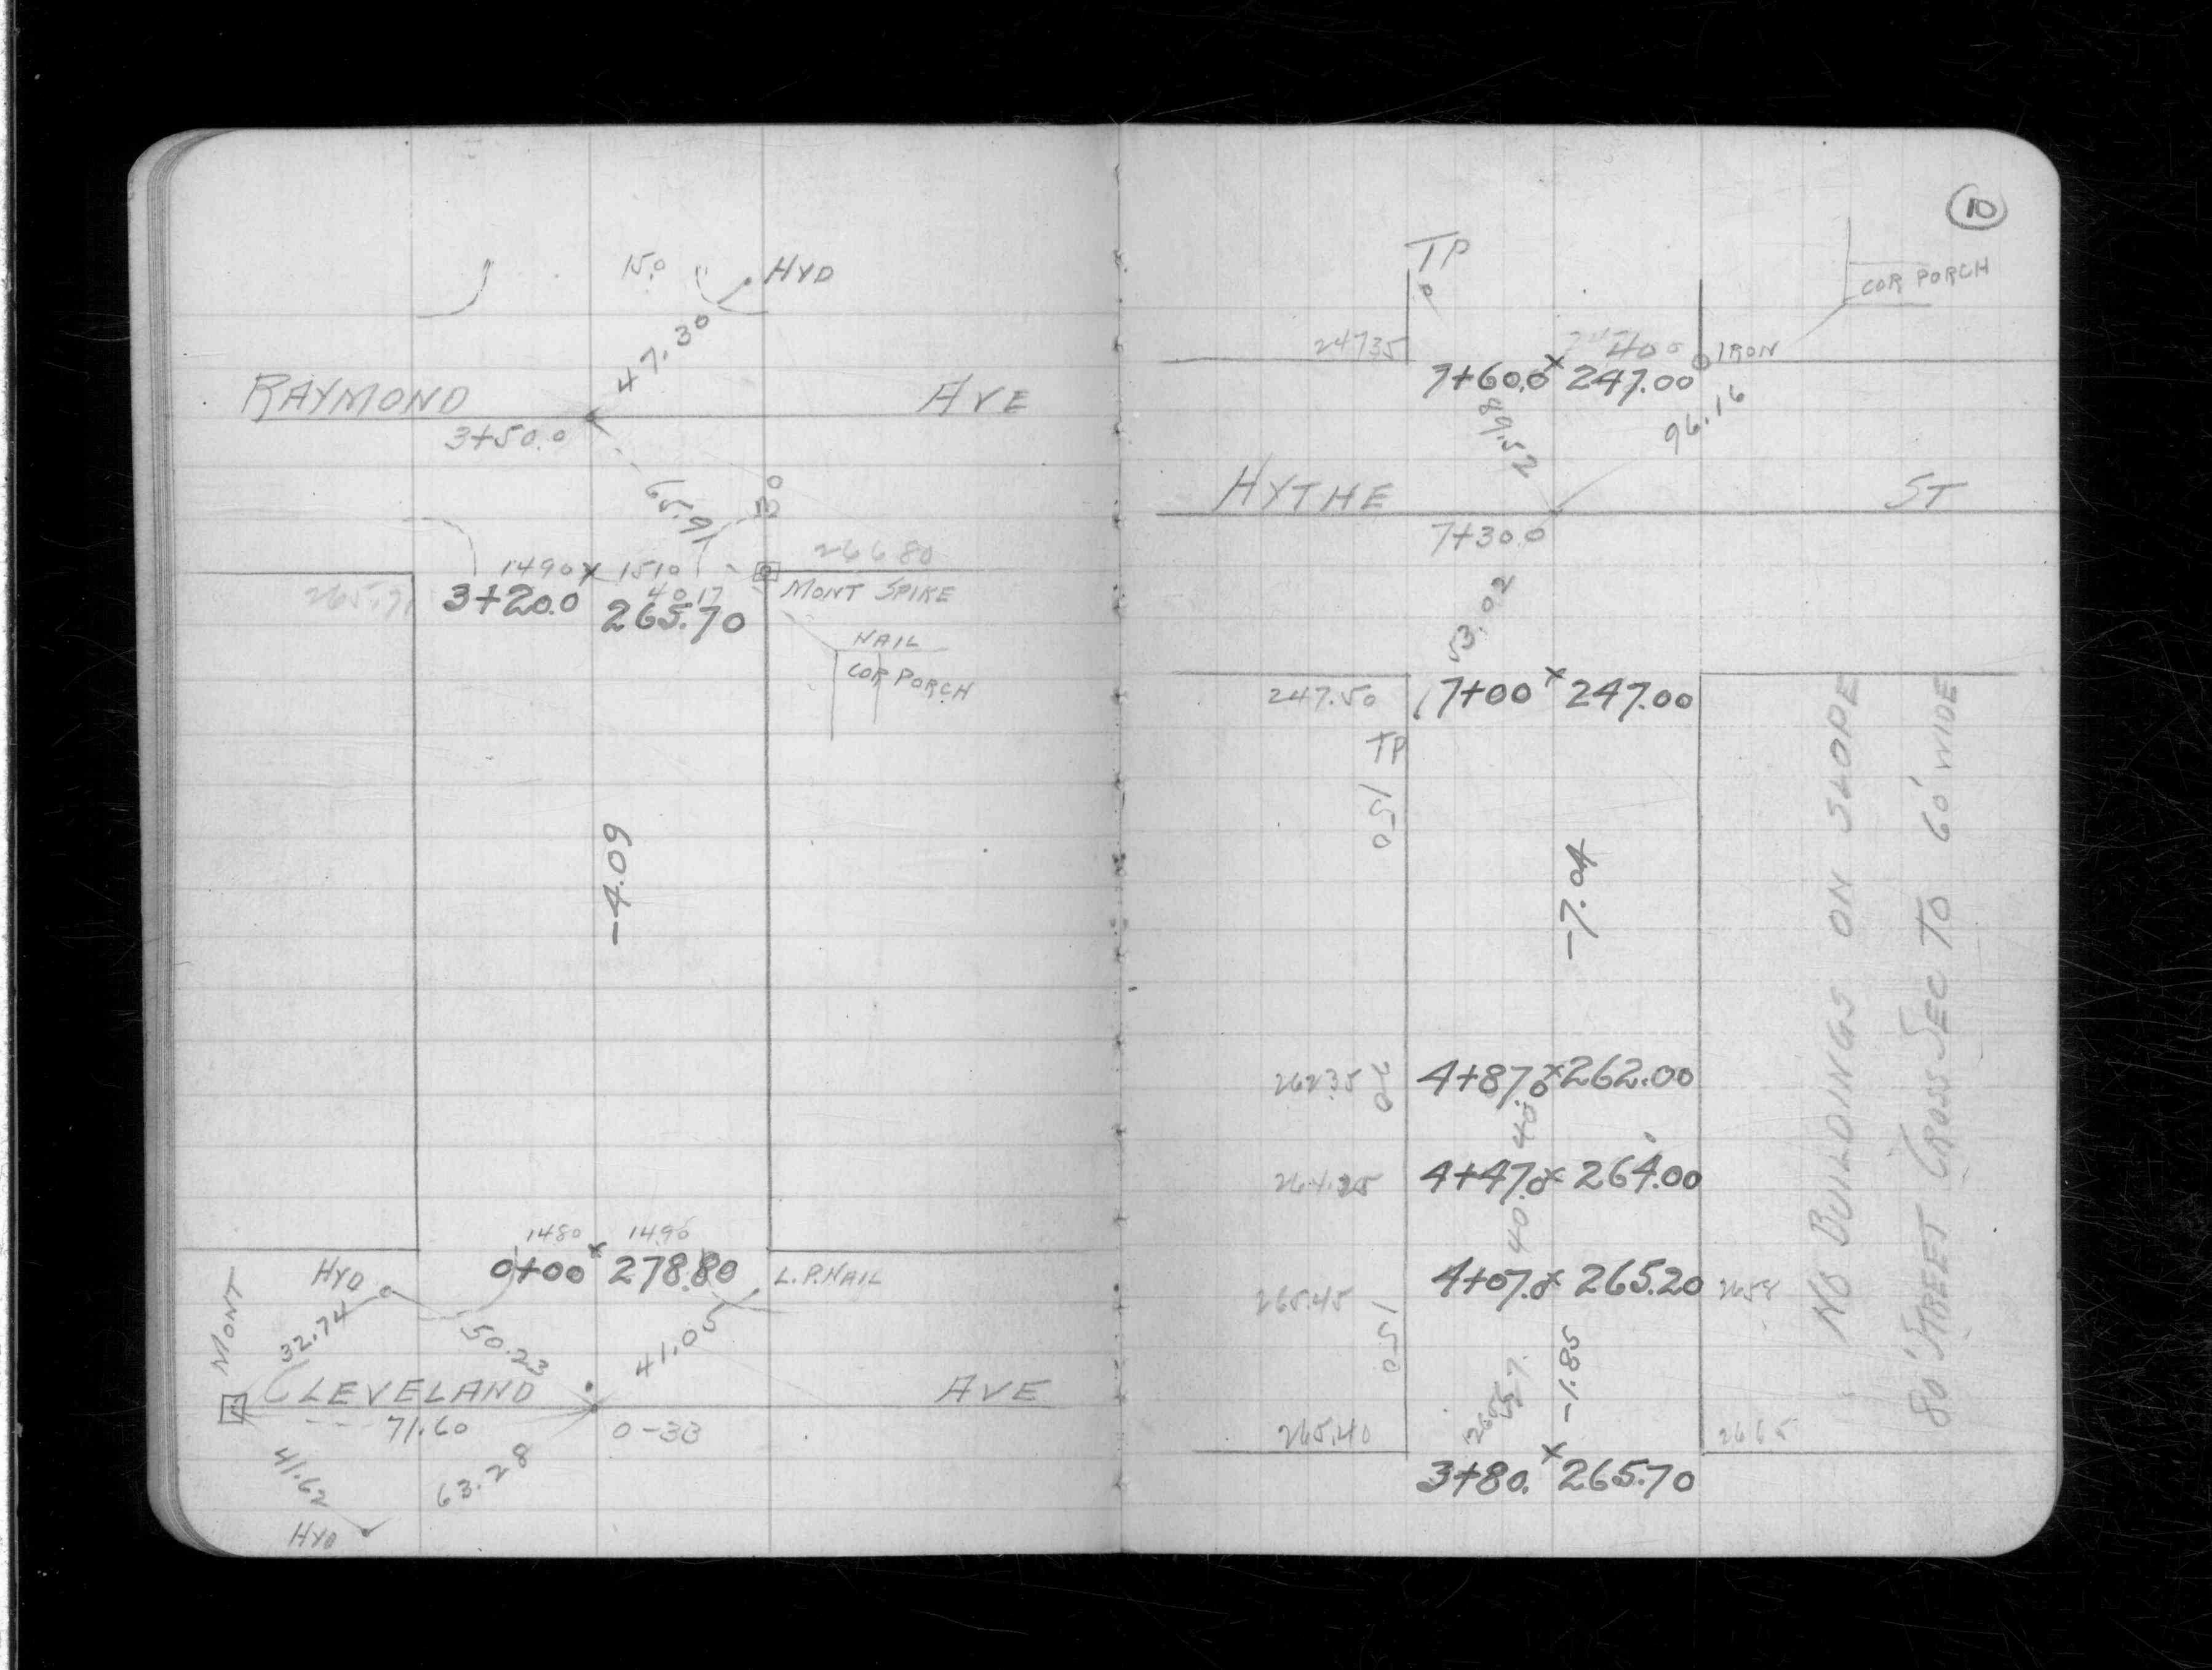 15.0
HYD
47.30
RAYMOND AVE
3+50.0
65.91
26680
1490 x 1510
40.17
MONT SPIKE
265.71
3+20.0 265.70
NAIL
COR PORCH
-4.09
1480 x 1490
HYD
0+00 278.80
L.P. NAIL
MONT
32.74
50.23
41.05
CLEVELAND AVE
71.60
0-33
41.62
63.28
HYD
10
TP
COR PORCH
24735
IRON
7+60.0 x 247.00
89.52
96.16
HYTHE ST
7+30.0
53.02
247.50
7+00 x 247.00
TP
150
-7.04
NO BUILDINGS ON SLOPE
80' STREET CROSS SEC TO 60' WIDE
26235
20
4+87.0 x 262.00
40
4+47.0 x 264.00
40
265.45
4+07.0 x 265.20
2658
150
27
-1.85
265.40
2665
3+80. x 265.70